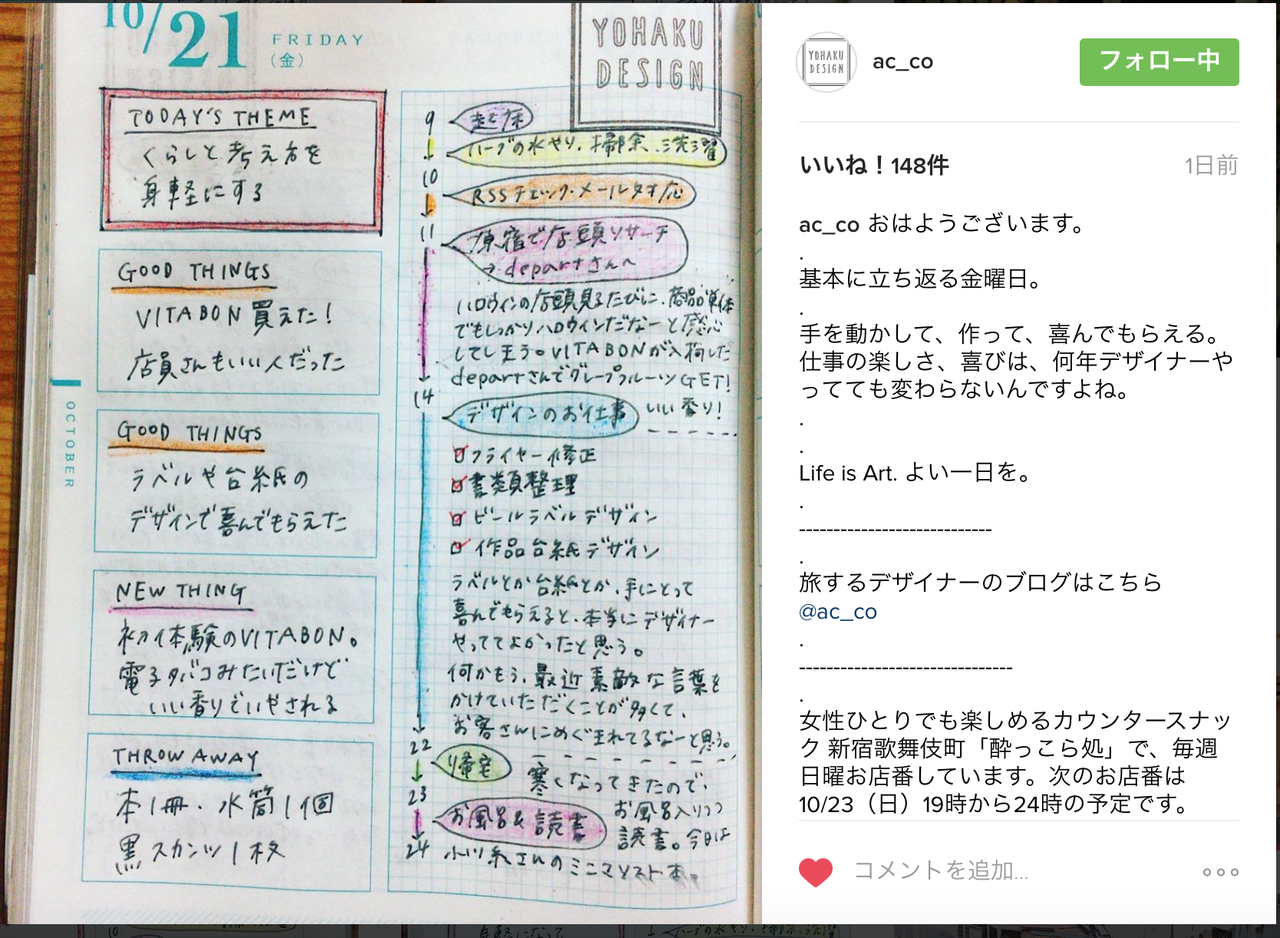 10/21 FRIDAY
(金)
YOHAKU
DESIGN
TODAY'S THEME
くらしと考え方を
身軽にする
GOOD THINGS
VITABON 買えた!
店員さんもいい人だった
GOOD THINGS
ラベルや台紙の
デザインで喜んでもらえた
NEW THING
初体験のVITABON。
電子タバコみたいだけど
いい香りでいやされる
THROW AWAY
本1冊・水筒1個
黒スカンツ1枚
OCTOBER
9 起床
ハーブの水やり、掃除、洗濯
10
RSSチェック・メール対応
11
原宿で店頭リサーチ
→departさんへ
ハロウィンの店頭見るたびに、商品単体
でもしっかりハロウィンだなーと感心
してしまう。VITABONが入荷した
departさんでグレープフルーツGET!
いい香り!
14
デザインのお仕事
フライヤー修正
書類整理
ビールラベルデザイン
作品台紙デザイン
ラベルとか台紙とか、手にとって
喜んでもらえると、本当にデザイナー
やっててよかったと思う。
何かもう、最近素敵な言葉を
かけていただくことが多くて、
お客さんにめぐまれてるなーと思う。
22
帰宅
寒くなってきたので、
お風呂入りつつ
読書。今日は
小川糸さんのミニマリスト本。
23
お風呂&読書
24
YOHAKU
DESIGN
ac_co
フォロー中
いいね!148件
1日前
ac_co おはようございます。
.
基本に立ち返る金曜日。
.
手を動かして、作って、喜んでもらえる。
仕事の楽しさ、喜びは、何年デザイナーや
ってても変わらないんですよね。
.
.
Life is Art. よい一日を。
.
----------------------------
.
旅するデザイナーのブログはこちら
@ac_co
.
-------------------------------
.
女性ひとりでも楽しめるカウンタースナッ
ク 新宿歌舞伎町「酔っこら処」で、毎週
日曜お店番しています。次のお店番は
10/23(日)19時から24時の予定です。
コメントを追加...